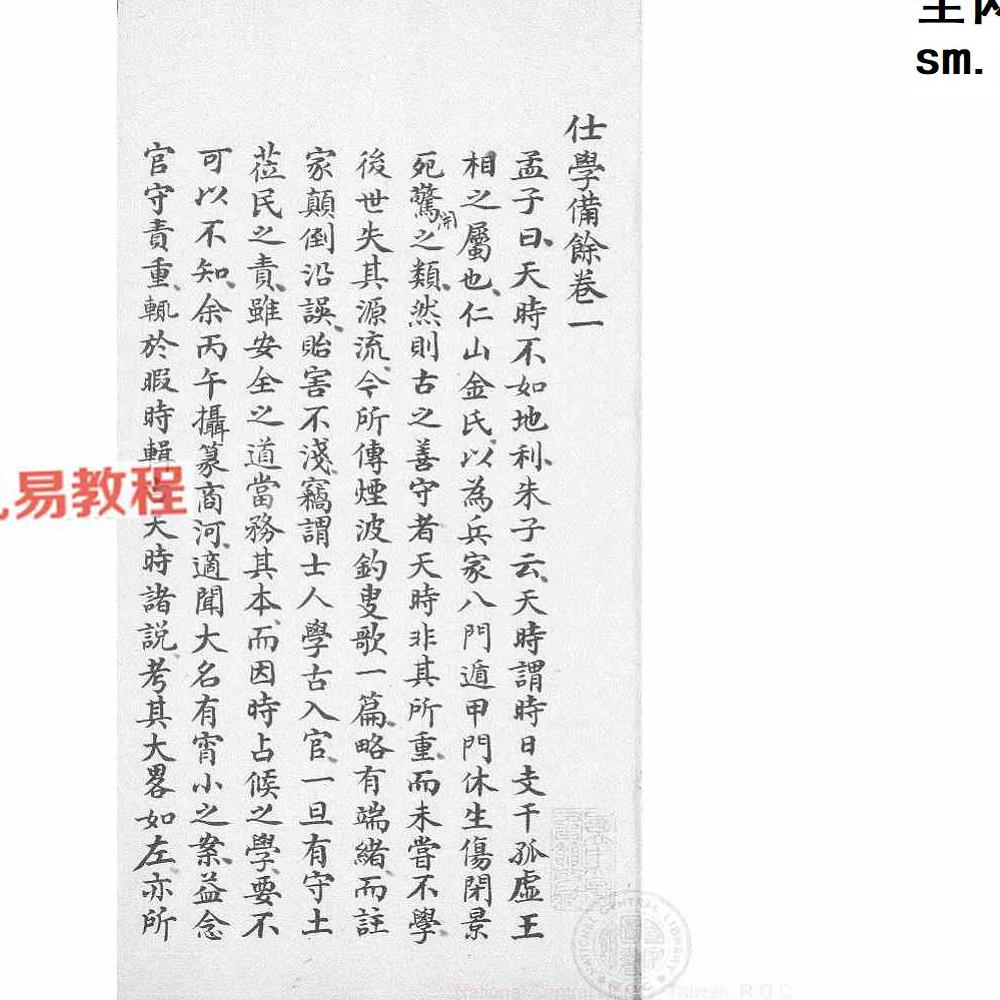 仕學備餘卷一
孟子曰天時不如地利朱子云天時謂時日支干孤虛王
相之屬也仁山金氏以為兵家八門遁甲門休生傷閉景
死驚開之類然則古之善守者天時非其所重而未嘗不學
後世失其源流今所傳煙波釣叟歌一篇略有端緒而註
家顛倒沿誤貽害不淺竊謂士人學古入官一旦有守土
蒞民之責雖安全之道當務其本而因時占候之學要不
可以不知余丙午攝篆商河適聞大名有宵小之案益念
官守責重輒於暇時輯天時諸説考其大畧如左亦所
易教程
sm.
National Central Library, Taiwan, R.O.C